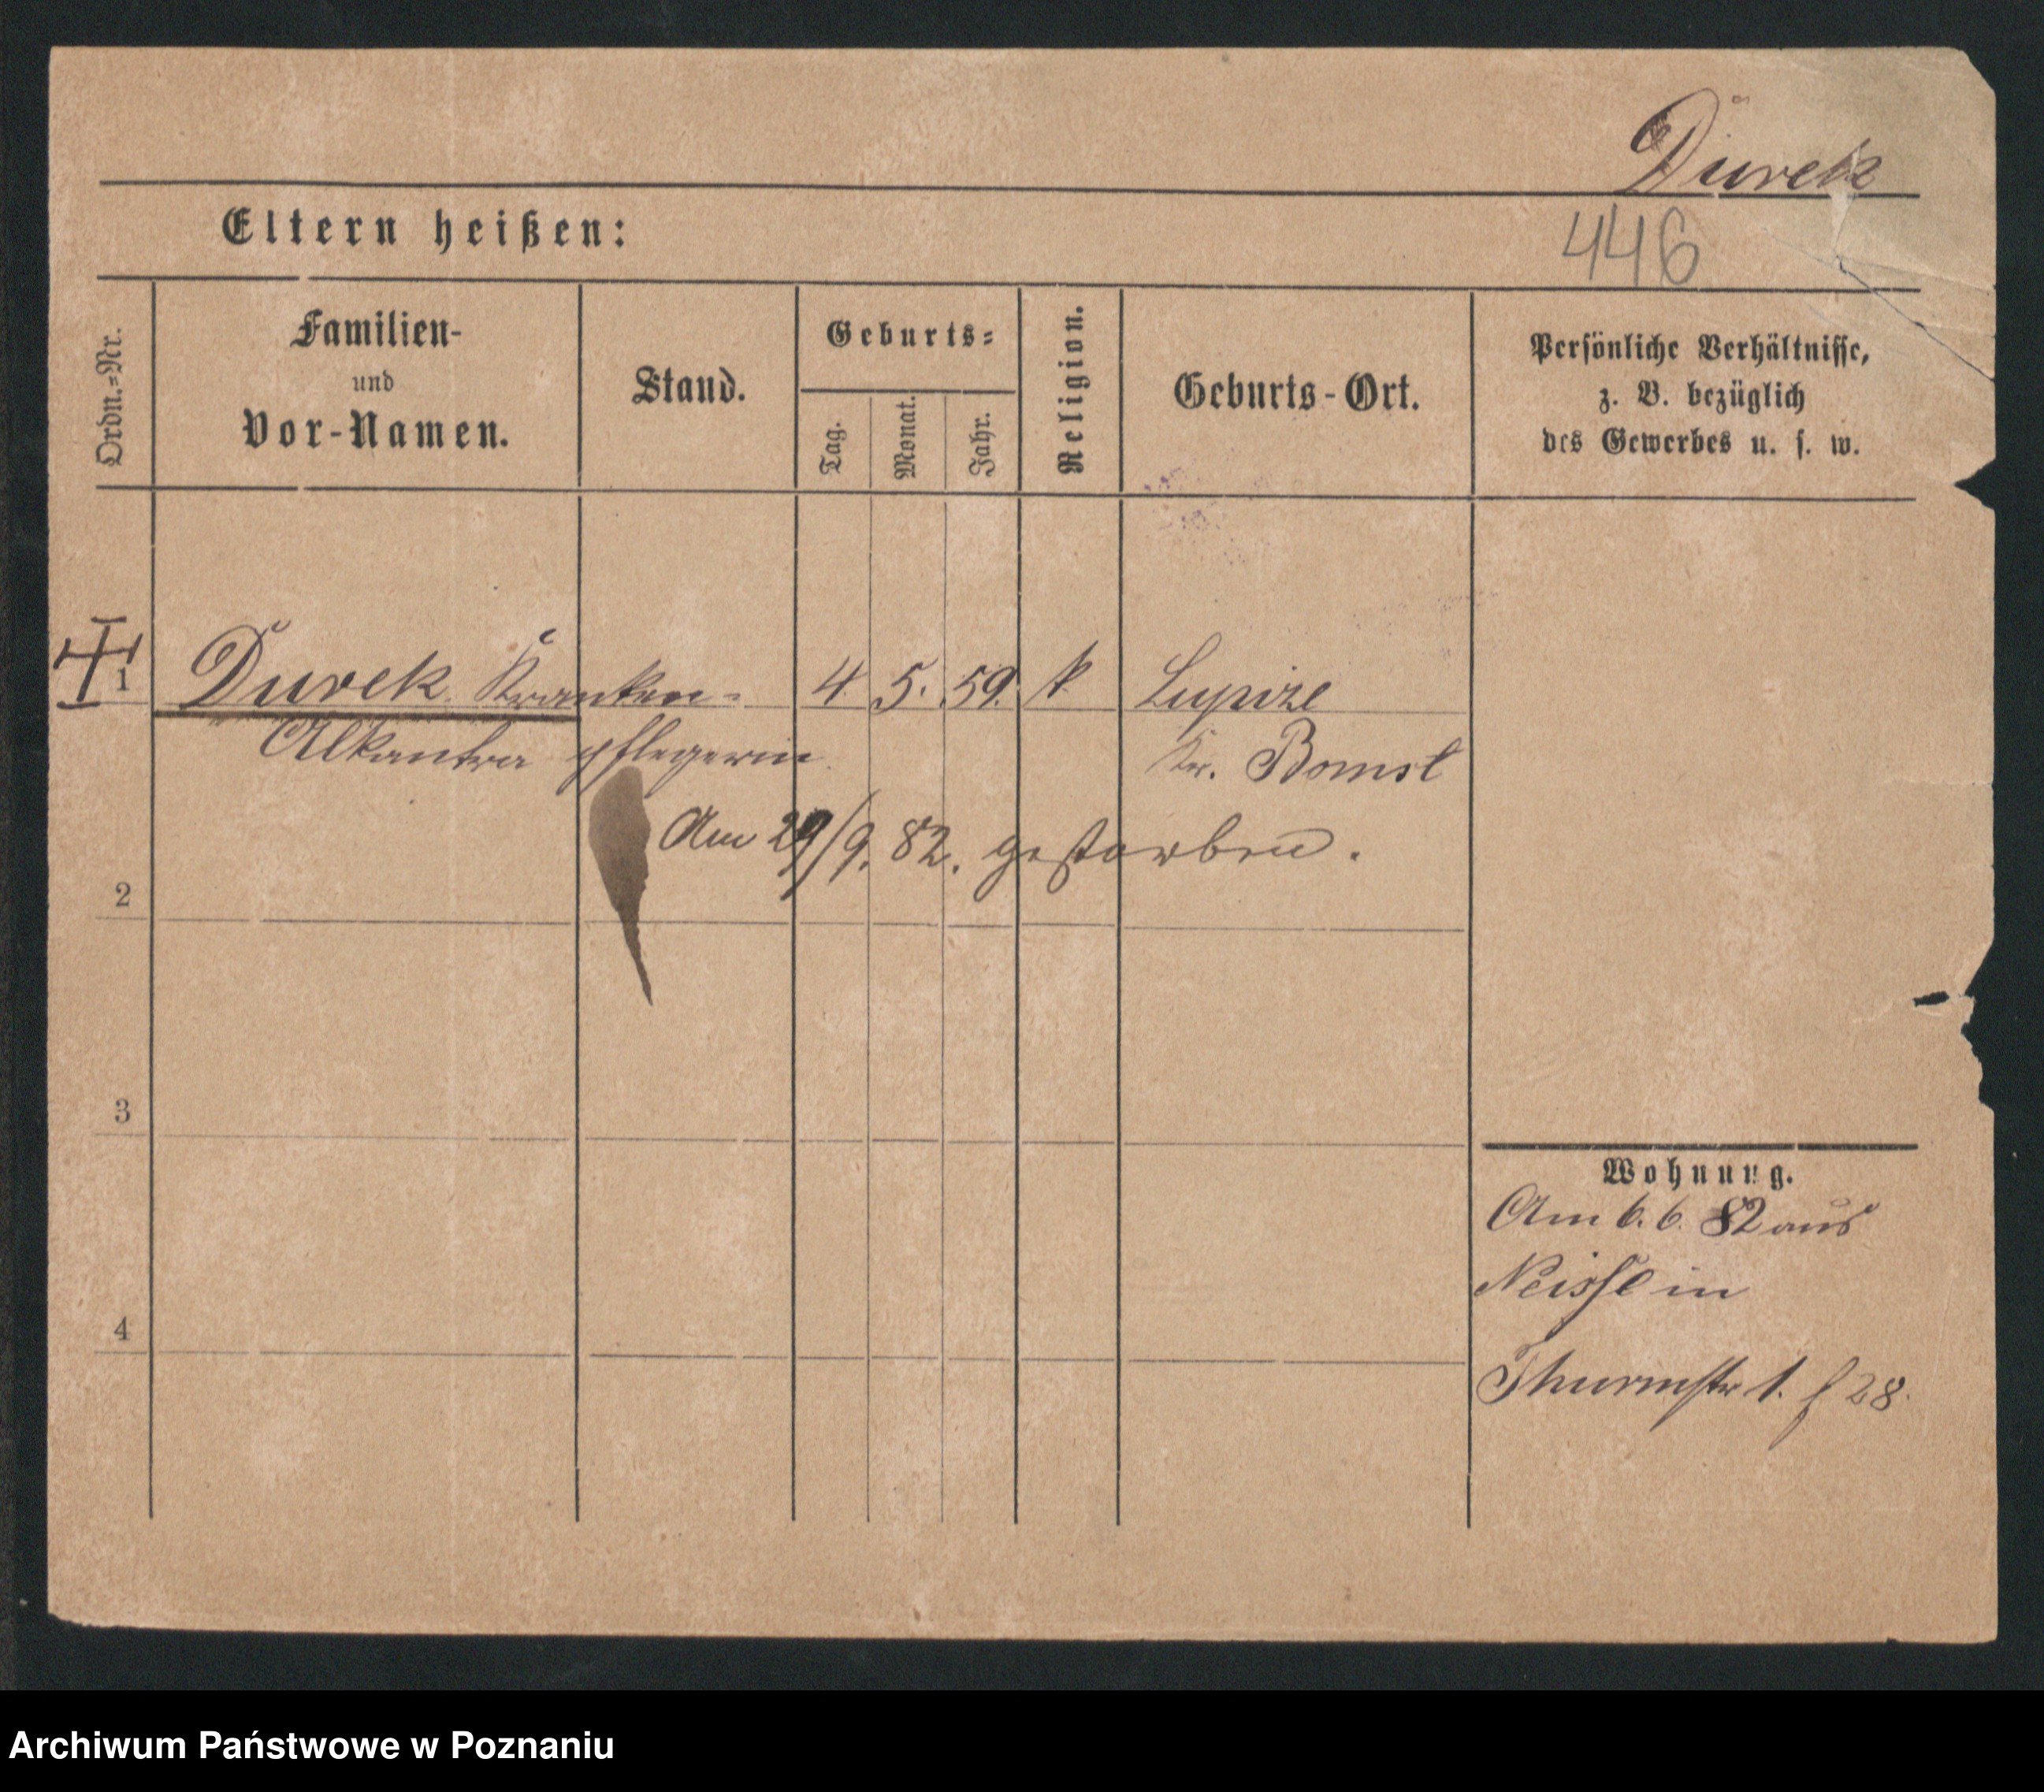 Durek
446
Eltern heißen:
Ordn.=Nr.
Familien-
und
Vor-Namen.
Stand.
Geburts=
Tag.
Monat.
Jahr.
Religion.
Geburts-Ort.
Persönliche Verhältnisse,
z. B. bezüglich
des Gewerbes u. s. w.
1 Durek Kranken- 4. 5. 59. k. Lupize
Alkantra pflegerin Kr. Bomst
Am 29/9. 82. gestorben.
2
3
4
Wohnung.
Am 6. 6. 82 aus
Neisse in
Thurmstr 1. f 28.
Archiwum Państwowe w Poznaniu